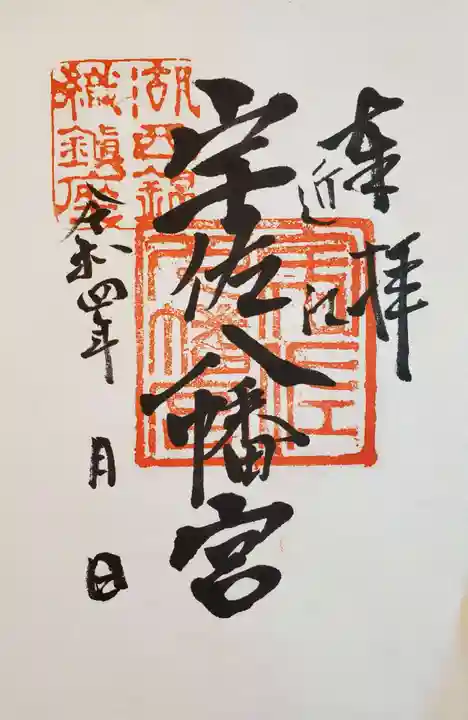 奉拝
近江
宇佐八幡宮
湖西錦
織鎮座
令和四年 月 日